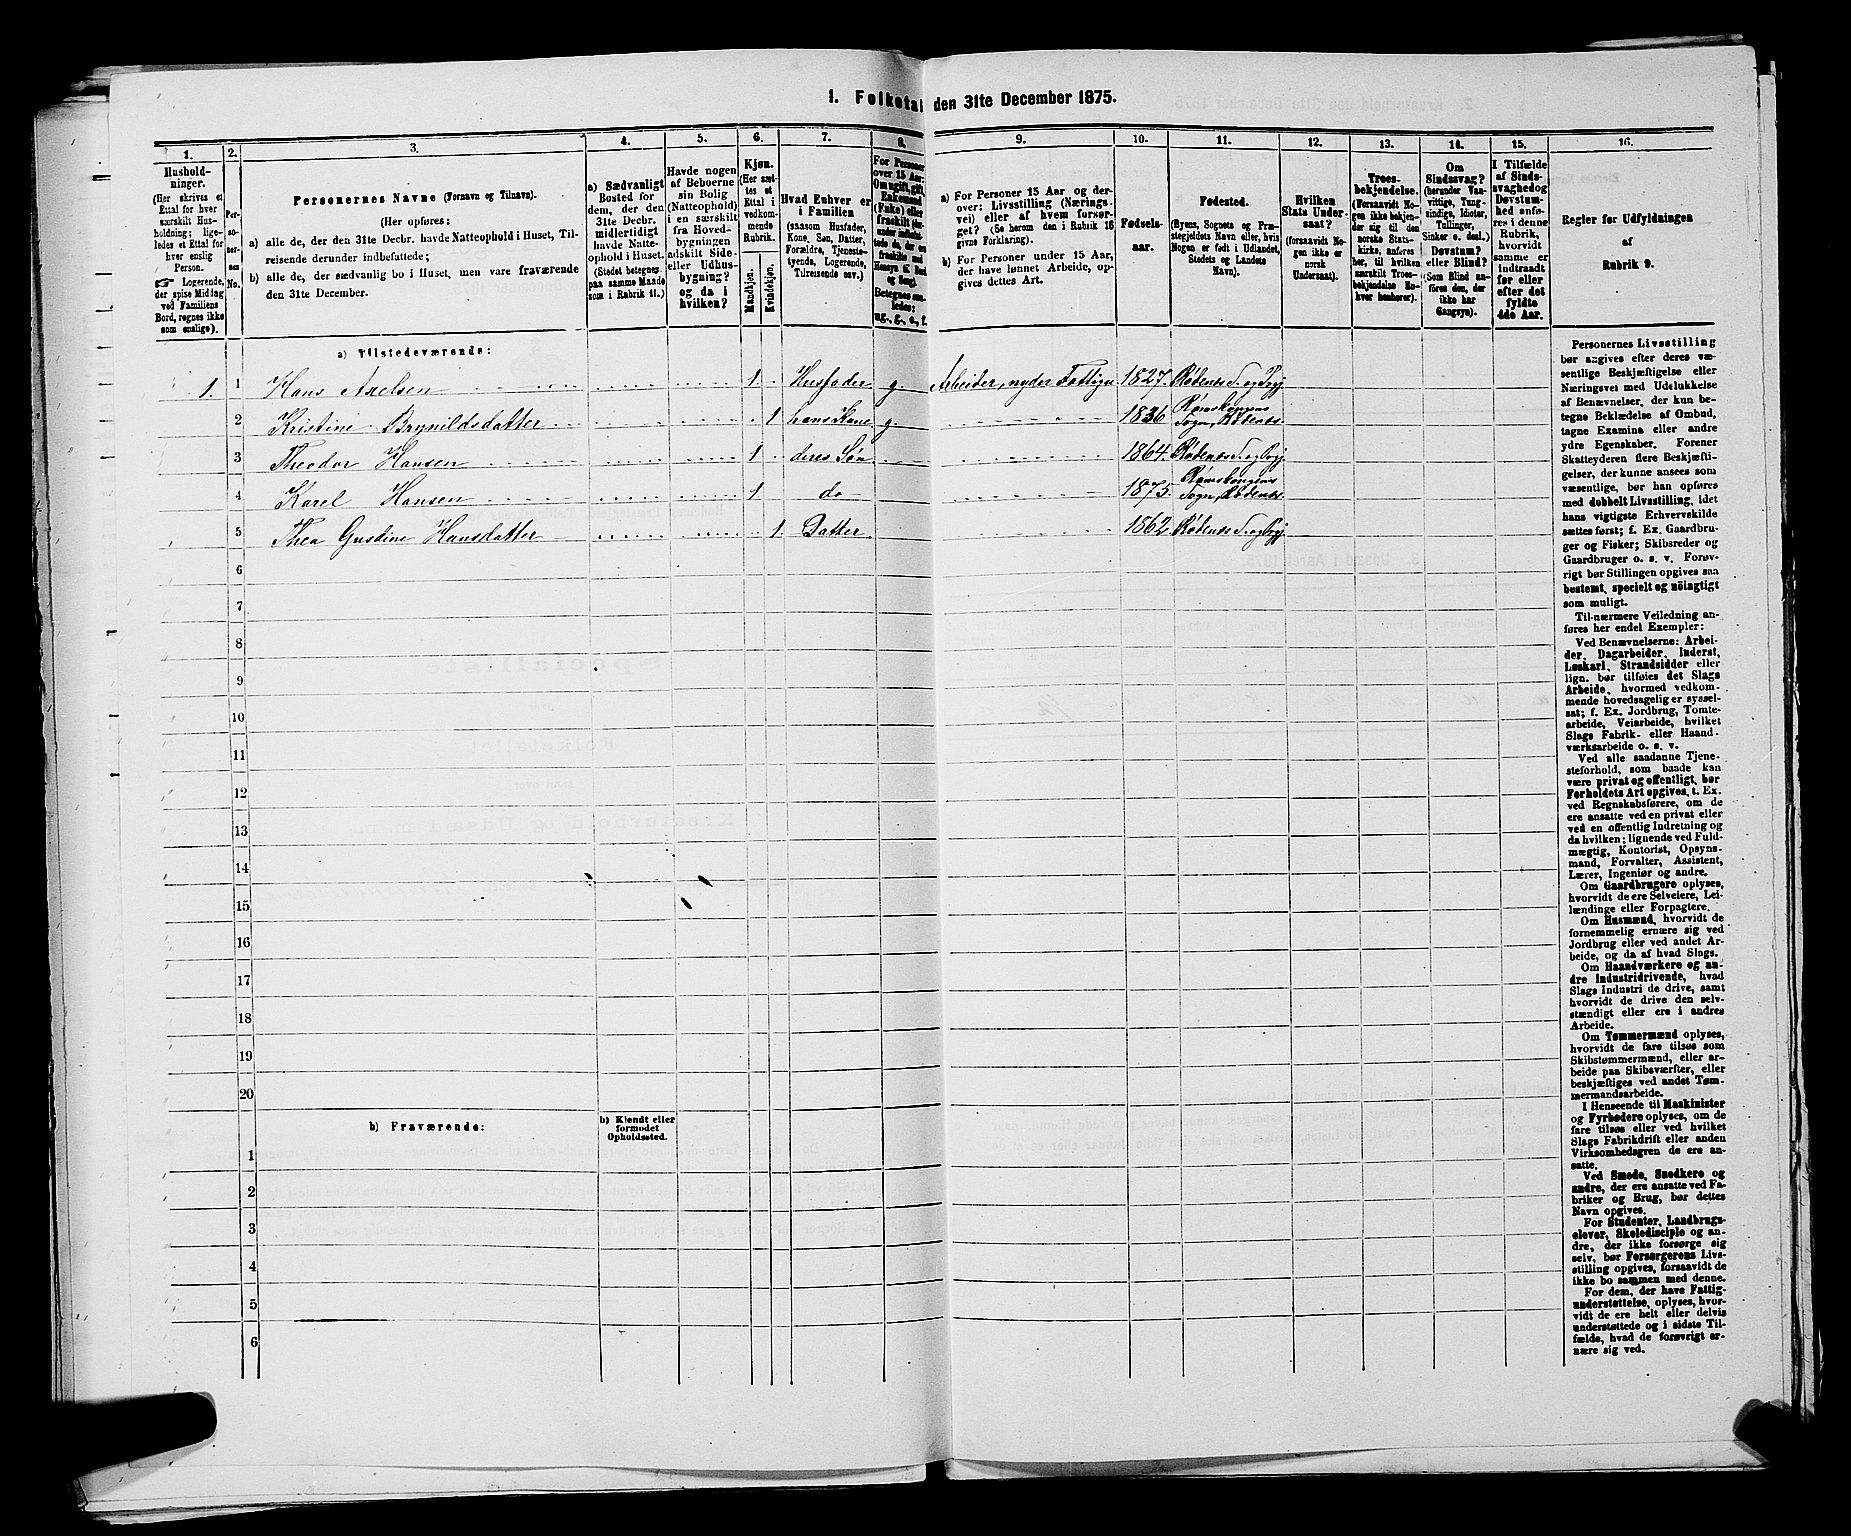 1. Folketal den 31te December 1875.
1.
Hushold-
ninger.
(Her skrives et
Ettal for hver
særskilt Hus-
holdning; lige-
ledes et Ettal for
hver enslig
Person.
☞ Logerende,
der spise Middag
ved Familiens
Bord, regnes ikke
som enslige).
2.
Per-
so-
ner-
nes
No.
3.
Personernes Navne (Fornavn og Tilnavn).
(Her opføres:
a) alle de, der den 31te Decbr. havde Natteophold i Huset, Til-
reisende derunder indbefattede;
b) alle de, der sædvanlig bo i Huset, men vare fraværende
den 31te December.
4.
a) Sædvanligt
Bosted for
dem, der den
31te Decbr.
midlertidigt
havde Natte-
ophold i Huset.
(Stedet betegnes
paa samme Maade
som i Rubrik 11.)
5.
Havde nogen
af Beboerne
sin Bolig
(Natteophold)
i en særskilt
fra Hoved-
bygningen
adskilt Side-
eller Udhus-
bygning?
og da i
hvilken?
6.
Kjøn.
(Her sæt-
tes et
Ettal i
vedkom-
mende
Rubrik.
Mandkjøn.
Kvindekjøn.
7.
Hvad Enhver er
i Familien
(saasom Husfader,
Kone, Søn, Datter,
Forældre, Tjeneste-
tyende, Logerende,
Tilreisende osv.)
8.
For Personer
over 15 Aar:
Om ugift, gift,
Enkemand
(Enke) eller
fraskilt
Betegnes saa-
ledes:
ug., g., e., f.
9.
a) For Personer 15 Aar og der-
over: Livsstilling (Nærings-
vei) eller af hvem forsør-
get? (Se herom den i Rubrik 16
givne Forklaring).
b) For Personer under 15 Aar,
der have lønnet Arbeide, op-
gives dettes Art.
10.
Fødsels-
aar.
11.
Fødested.
(Byens, Sognets og Præ-
stegjeldets Navn eller, hvis
Nogen er født i Udlandet,
Stedets og Landets
Navn).
12.
Hvilken
Stats Under-
saat?
(forsaavidt No-
gen ikke er
norsk
Undersaat).
13.
Troes-
bekjendelse.
(Forsaavidt No-
gen ikke bekjen-
der sig til den
norske Stats-
kirke, anføres
her, til hvilken
særskilt Troes-
bekjendelse En-
hver henhører).
14.
Om
Sindssvag?
(herunder Van-
vittige, Tung-
sindige, Idioter,
Tullinger,
Sinker o. desl.)
Døvstum?
eller Blind?
(Som Blind an-
føres den, der
ikke har
Gangsyn).
15.
I Tilfælde
af Sinds-
svaghed og
Døvstum-
hed anfø-
res i denne
Rubrik,
hvorvidt
samme er
indtraadt
før eller
efter det
fyldte
4de Aar.
16.
Regler for Udfyldningen
af
Rubrik 9.
a) Tilstedeværende:
1. 1 Hans Axelsen 1 Husfader g. Arbeider, nyder Fattigu 1827. Rødenæs S. og Pgj.
2 Kristine Brynildsdatter 1 hans Kone g. 1836 Rømskogens Sogn, Rødenæs
3 Theodor Hansen 1 deres Søn 1864. Rødenæs S. og Pgj.
4 Karel Hansen 1 do 1875. Rømskogens Sogn, Rødenæs
5 Thea Gustine Hansdatter 1 Datter 1862. Rødenæs S. og Pgj.
6
7
8
9
10
11
12
13
14
15
16
17
18
19
20
b) Fraværende:
b) Kjendt eller
formodet
Opholdssted.
1
2
3
4
5
6
Personernes Livsstilling
bør angives efter deres væ-
sentlige Beskjæftigelse eller
Næringsvei med Udelukkelse
af Benævnelser, der kun be-
tegne Beklædelse af Ombud,
tagne Examina eller andre
ydre Egenskaber. Forener
Skatteyderen flere Beskjæfti-
gelser, der kunne ansees som
væsentlige, bør han opføres
med dobbelt Livsstilling, idet
hans vigtigste Erhvervskilde
sættes først; f. Ex. Gaardbru-
ger og Fisker; Skibsreder og
Gaardbruger o. s. v. Forøv-
rigt bør Stillingen opgives saa
bestemt, specielt og nöiagtigt
som muligt.
Til nærmere Veiledning an-
føres her endel Exempler:
Ved Benævnelserne: Arbei-
der, Dagarbeider, Inderst,
Løskarl, Strandsidder eller
lign. bør tilføies det Slags
Arbeide, hvormed vedkom-
mende hovedsagelig er syssel-
sat; f. Ex. Jordbrug, Tomte-
arbeide, Veiarbeide, hvilket
Slags Fabrik- eller Haand-
værksarbeide o. s. v.
Ved alle saadanne Tjene-
steforhold, som baade kan
være privat og offentligt, bør
Forholdets Art opgives, t. Ex.
ved Regnskabsførere, om de
ere ansatte ved en privat eller
ved en offentlig Indretning og
da hvilken; lignende ved Fuld-
mægtig, Kontorist, Opsyns-
mand, Forvalter, Assistent,
Lærer, Ingeniør og andre.
Om Gaardbrugere oplyses,
hvorvidt de ere Selveiere, Lei-
lændinge eller Forpagtere.
Om Husmænd, hvorvidt de
fornemmelig ernære sig ved
Jordbrug eller ved andet Ar-
beide, og da af hvad Slags.
Om Haandværkere og an-
dre Industridrivende, hvad
Slags Industri de drive, samt
hvorvidt de drive den selv-
stændigt eller ere i andres
Arbeide.
Om Tømmermænd oplyses,
hvorvidt de fare tilsøs som
Skibstømmermænd, eller ar-
beide paa Skibsværfter, eller
beskjæftiges ved andet Tøm-
mermandsarbeide.
I Henseende til Maskinister
og Fyrbødere oplyses, om de
fare tilsøs eller ved hvilket
Slags Fabrikdrift eller anden
Virksomhedsgren de ere an-
satte.
Ved Smede, Snedkere og
andre, der ere ansatte ved Fa-
briker og Brug, bør dettes
Navn opgives.
For Studenter, Landbrugs-
elever, Skoledisciple og an-
dre, der ikke forsørge sig
selv, bør Forsørgerens Livs-
stilling opgives, forsaavidt de
ikke bo sammen med denne.
For dem, der have Fattig-
understøttelse, oplyses, hvor-
vidt de ere helt eller delvis
understøttede og i sidste Til-
fælde, hvad de forøvrigt er-
nære sig ved.